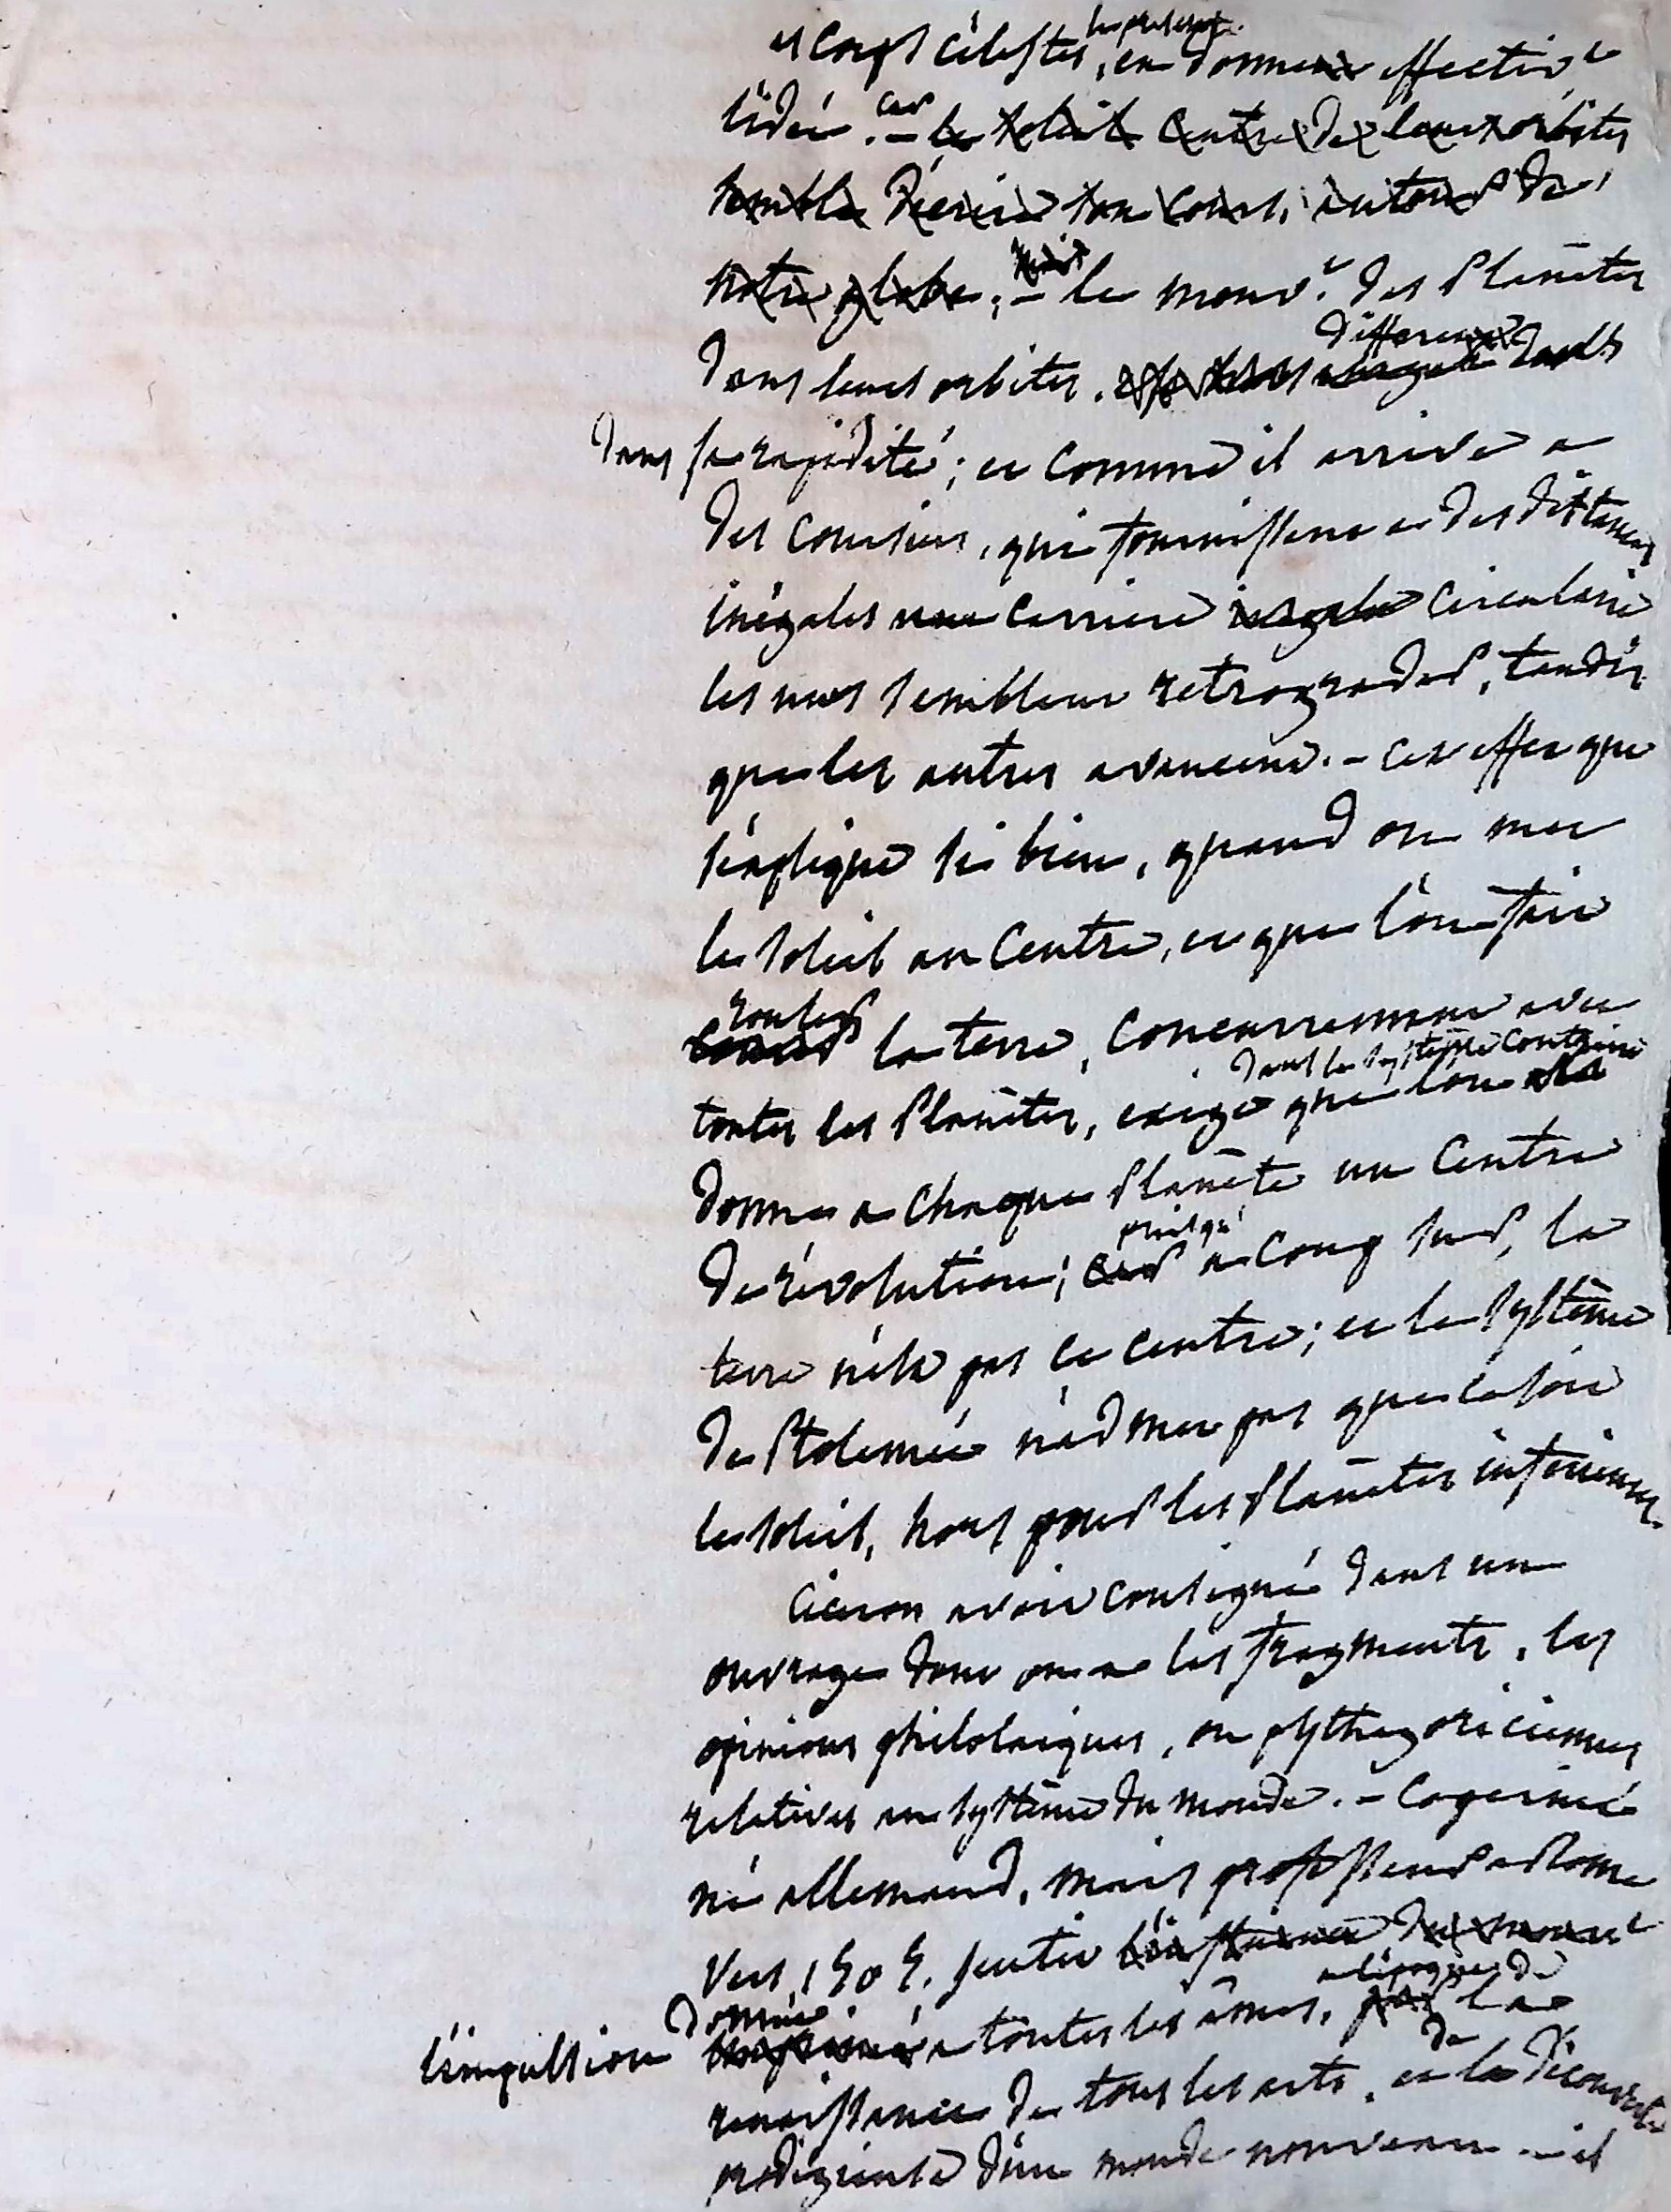 et corps célestes, en donnent effectiv.t
l'idée. car le soleil centre de leurs orbites
semble décrire son cours autour de
notre globe; - le mouv.t des Planètes
dans leurs orbites. différent dans
dans sa rapidité; et comme il arrive a
des coursiers, qui fournissent a des distances
inégales une carriere inégale circulaire
les uns semblent retrograder, tandis
que les autres avancent. - cet effet que
s'explique si bien, quand on met
le soleil au centre, et que l'on fait
rouler
la terre, concurremment avec
dans le systême contraire
toutes les Planètes, exige que l'on
donne a chaque Planète un centre
puisqu'
de révolution; car a coup sur, la
terre n'est pas ce centre; et le systême
de Ptolemée n'admet pas que ce soit
le soleil, hors pour les Planètes inférieures.
Ciceron avoit consigné dans un
ouvrage dont on a les fragments, les
opinions philolaiques, ou pythagoriciennes
relatives au systême du monde. - Copernic
né allemand, mais professeur a Rome
vers 1505. sentit
a l'époque de
donnée
l'impulsion a toutes les âmes, par la
de
renaissance de tous les arts, et la découverte
prodigieuse d'un monde nouveau - il